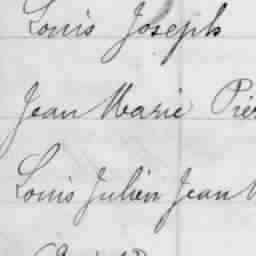 Louis Joseph
Jean Marie
Louis Julien Jean